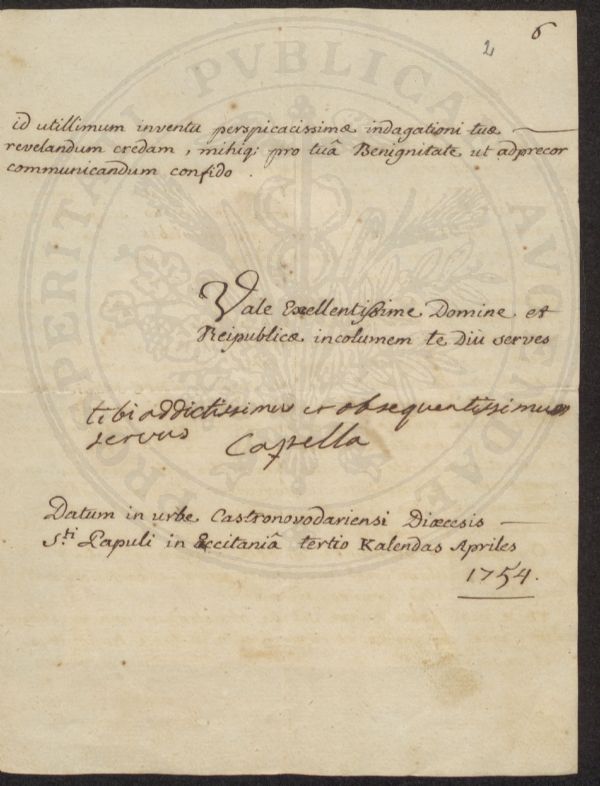 2 6
id utillimum inventu perspicacissimæ indagationi tuæ
revelandum credam, mihiq; pro tuâ Benignitate ut adprecor
communicandum confido.
Vale Exellentissime Domine et
Reipublicæ incolumem te Diù serves
tibi addictissimus et obsequentissimus
servus
Capella
Datum in urbe Castronovodariensi Diœcesis
S.ti Papuli in Occitaniâ tertio Kalendas Apriles
1754.
PROSPERITATI PVBLICAE AVGENDAE